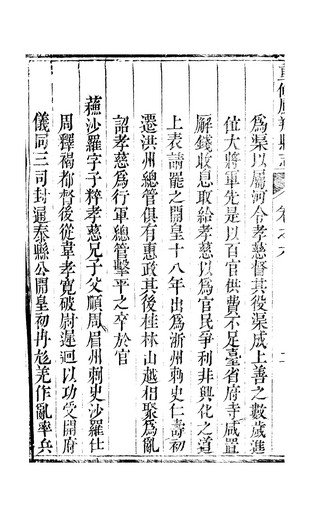 重修鳳翔縣志 卷之六 二
為渠以屬河令孝慈督其役渠成上善之數歲進
位大將軍先是以百官供費不足臺省府寺咸置
廨錢收息取給孝慈以為官民爭利非興化之道
上表請罷之開皇十八年出為淅州刺史仁壽初
遷洪州總管俱有惠政其後桂林山越相聚為亂
詔孝慈為行軍總管擊平之卒於官
蘇沙羅字子粹孝慈兄子父順周眉州刺史沙羅仕
周釋褐都督後從韋孝寬破尉遲迥以功受開府
儀同三司封泰縣公開皇初冉尨羌作亂率兵